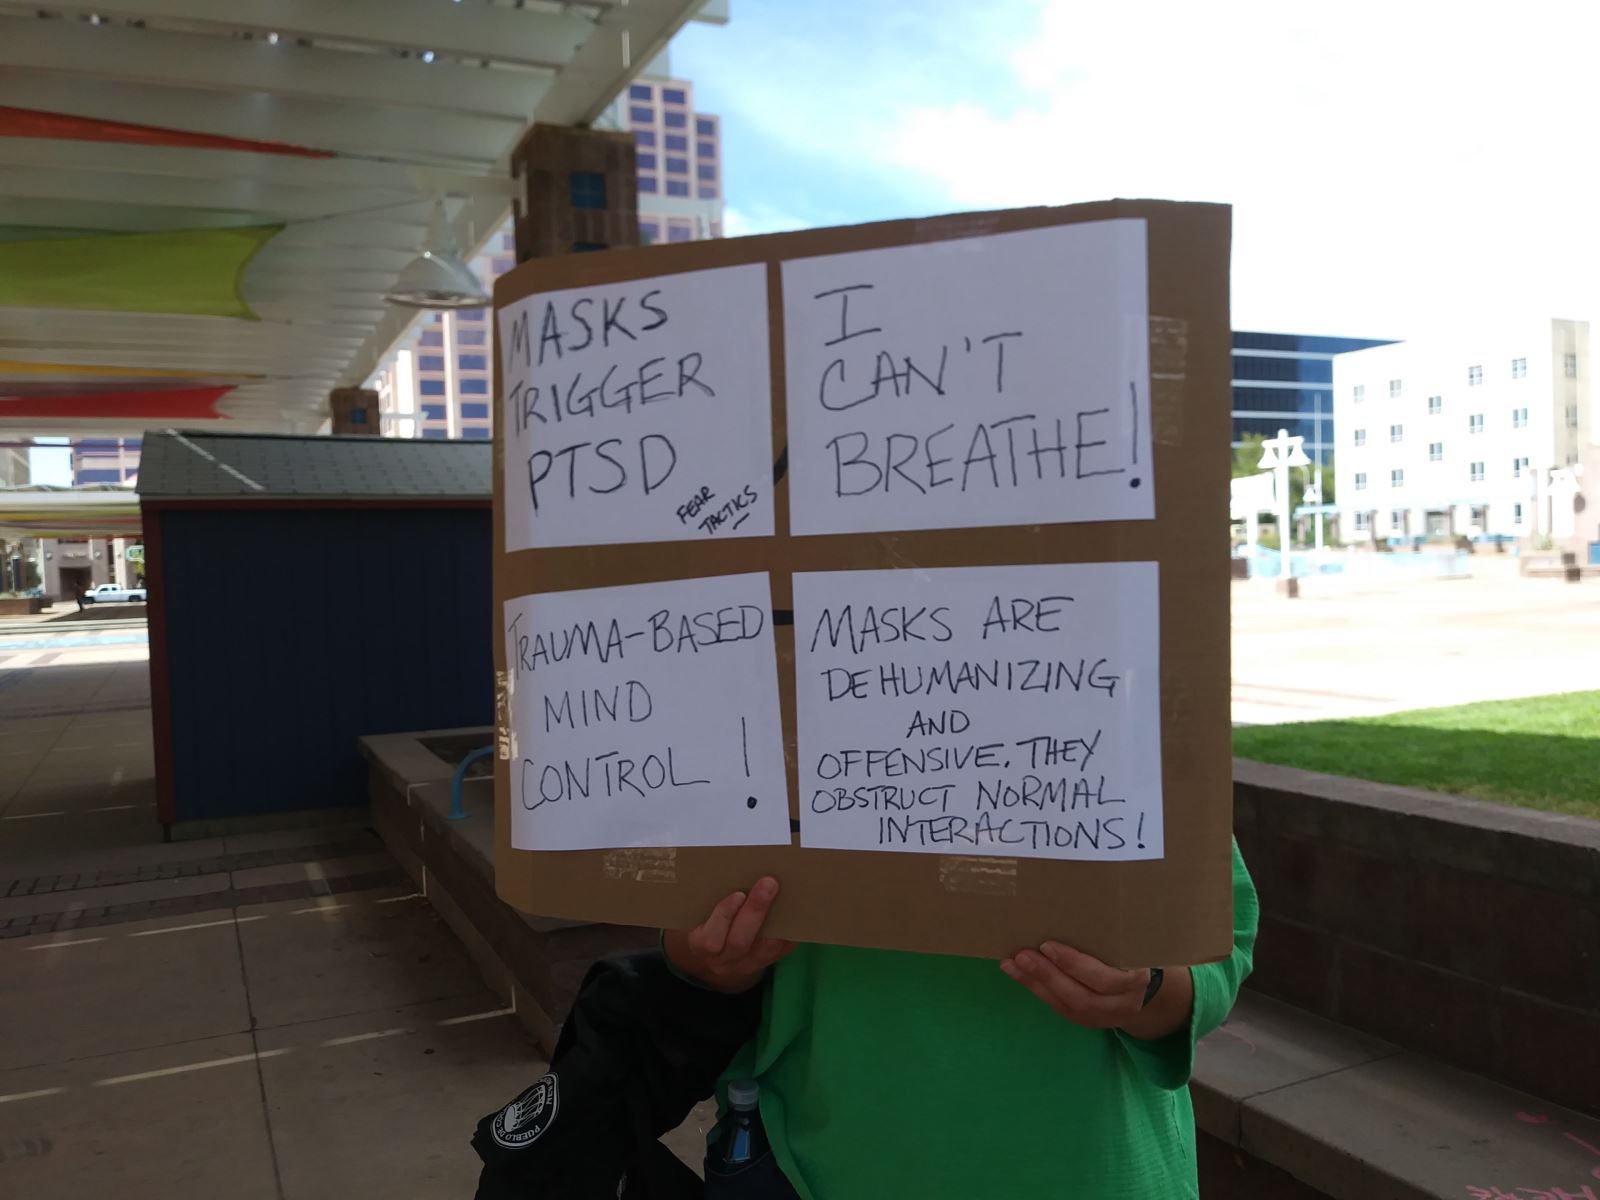 MASKS
TRIGGER
PTSD
FEAR
TACTICS
I
CAN'T
BREATHE!
TRAUMA-BASED
MIND
CONTROL!
MASKS ARE
DEHUMANIZING
AND
OFFENSIVE. THEY
OBSTRUCT NORMAL
INTERACTIONS!
PUEBLO DE